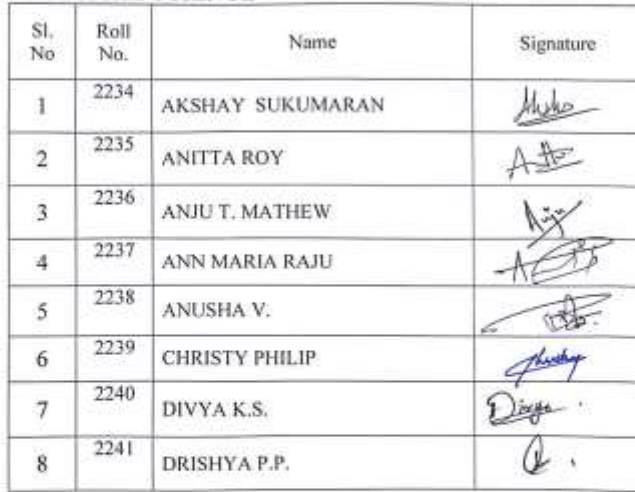 Sl. No Roll No. Name Signature
1 2234 AKSHAY SUKUMARAN
2 2235 ANITTA ROY
3 2236 ANJU T. MATHEW Anju
4 2237 ANN MARIA RAJU
5 2238 ANUSHA V.
6 2239 CHRISTY PHILIP
7 2240 DIVYA K.S. Divya
8 2241 DRISHYA P.P.